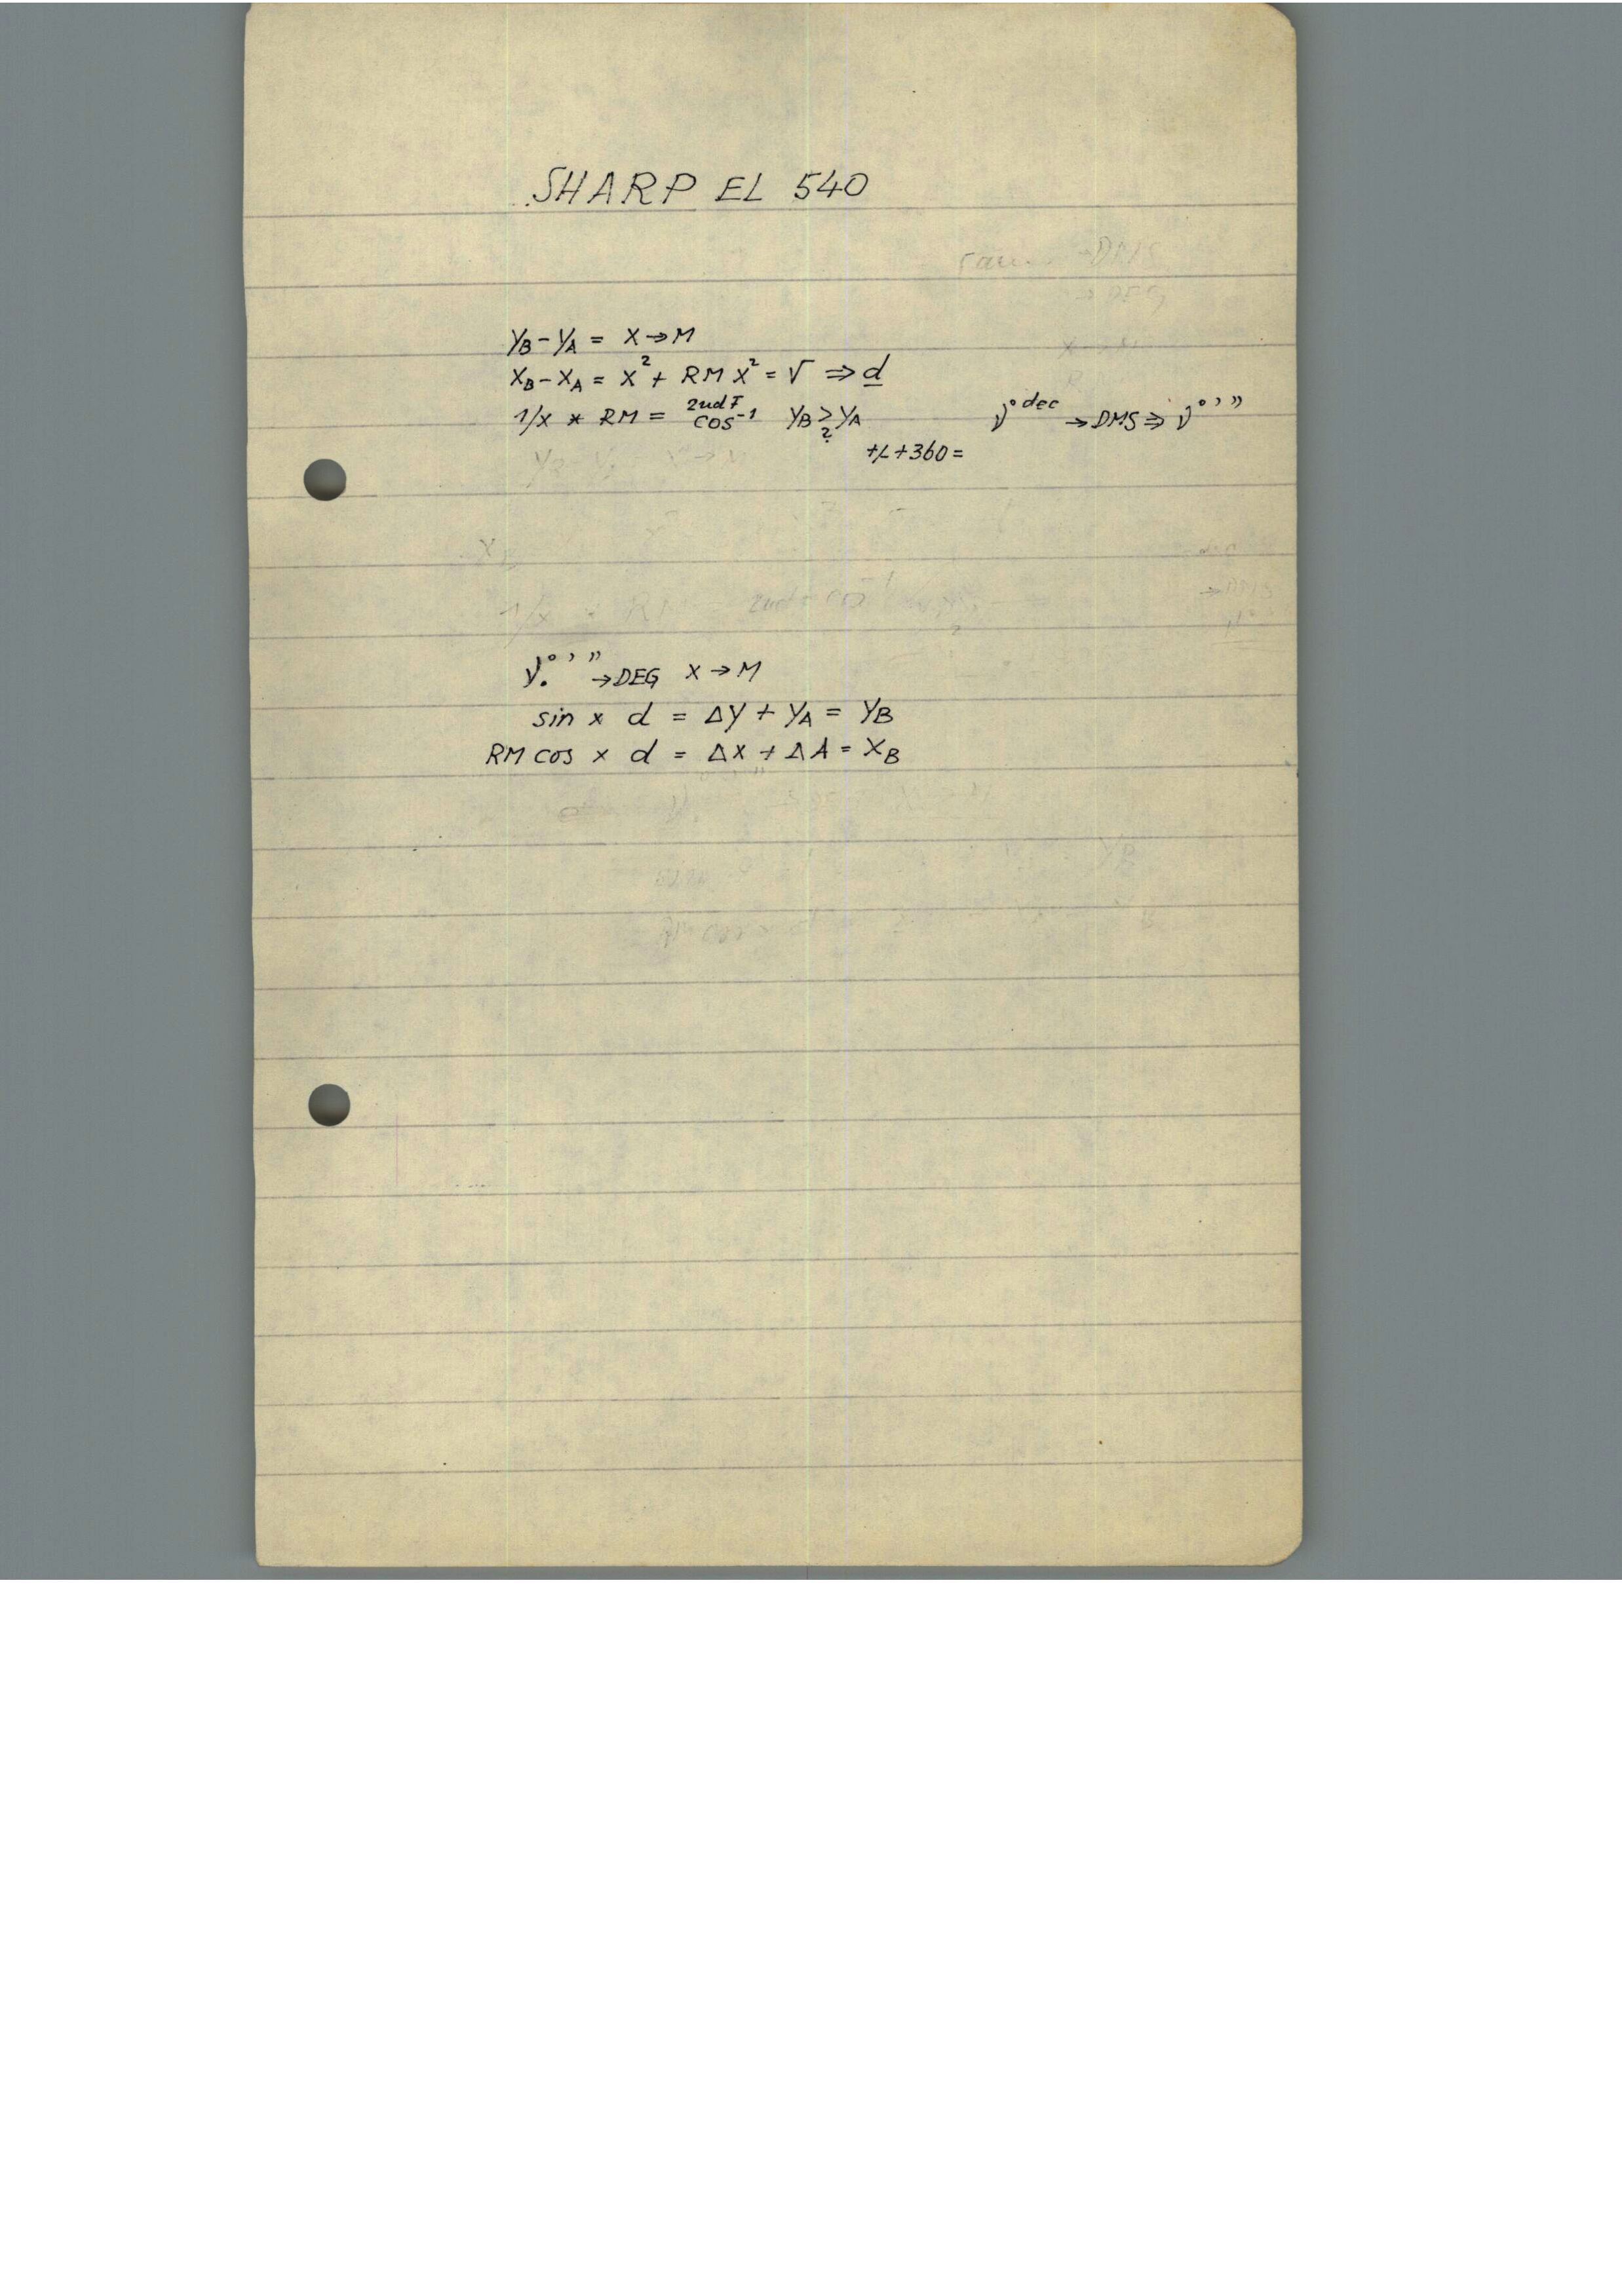 SHARP EL 540
YB - YA = X→M
XB - XA = X² + RM X² = √ ⇒ d
1/x * RM = 2ndF cos⁻¹ YB >? YA ν° dec →DMS ⇒ ν° ' "
+/- +360 =
ν.° ' " →DEG X→M
sin x d = ΔY + YA = YB
RM cos x d = ΔX + ΔA = XB